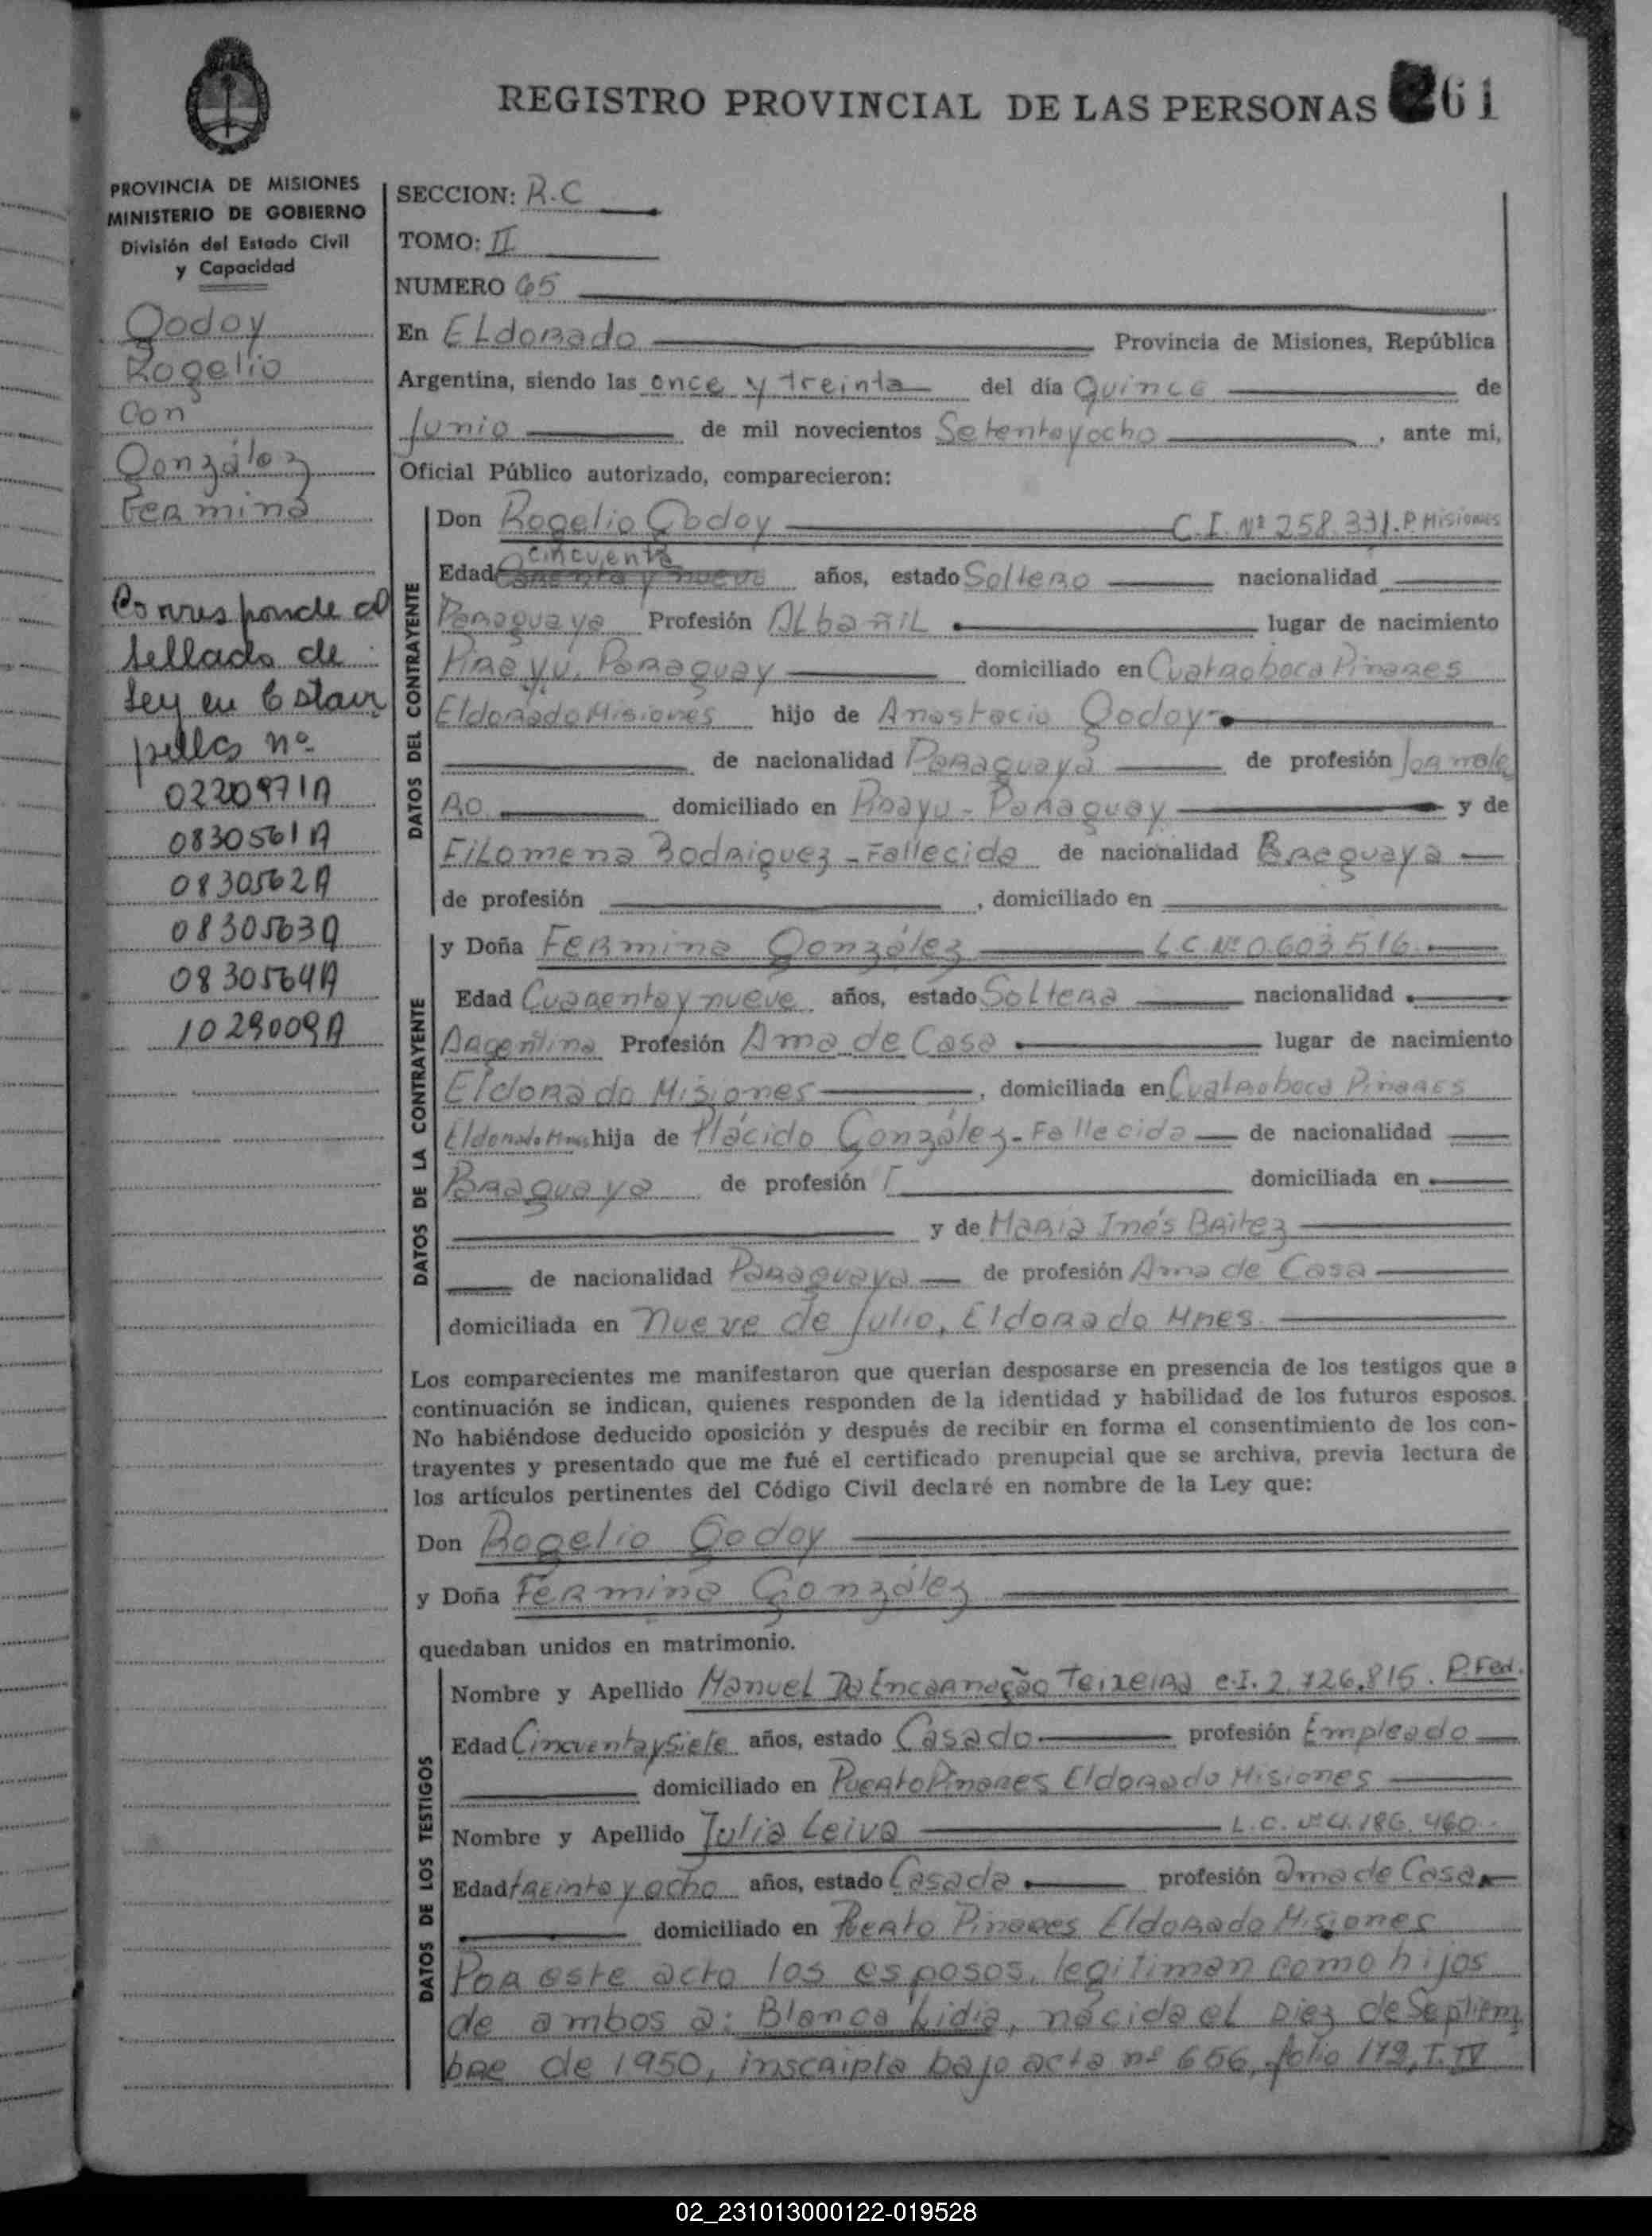 REGISTRO PROVINCIAL DE LAS PERSONAS 61
PROVINCIA DE MISIONES
MINISTERIO DE GOBIERNO
División del Estado Civil
y Capacidad
Godoy
Rogelio
con
González
Fermina
Corresponde al
sellado de
Ley en Estam
pillas nº
0220971A
0830561A
0830562A
0830563A
0830564A
1029009A
SECCION: R.C
TOMO: II
NUMERO 65
En Eldorado Provincia de Misiones, República
Argentina, siendo las once y treinta del día Quince de
Junio de mil novecientos Setentayocho, ante mi,
Oficial Público autorizado, comparecieron:
DATOS DEL CONTRAYENTE
Don Rogelio Godoy C.I. Nº 258.391. P. Misiones
cincuenta
Edad años, estado Soltero nacionalidad
Paraguaya Profesión Albañil lugar de nacimiento
Pirayu, Paraguay domiciliado en Cuatroboca Pinares
Eldorado Misiones hijo de Anastacio Godoy
de nacionalidad Paraguaya de profesión Jornale
ro domiciliado en Pirayu - Paraguay y de
Filomena Rodriguez - Fallecida de nacionalidad Paraguaya
de profesión , domiciliado en
DATOS DE LA CONTRAYENTE
y Doña Fermina González L.C. Nº 0.603.516
Edad Cuarenta y nueve años, estado Soltera nacionalidad
Argentina Profesión Ama de Casa lugar de nacimiento
Eldorado Misiones , domiciliada en Cuatroboca Pinares
Eldorado Mnes hija de Plácido González - Fallecido de nacionalidad
Paraguaya de profesión domiciliada en
y de Maria Inés Baitez
de nacionalidad Paraguaya de profesión Ama de Casa
domiciliada en nueve de Julio, Eldorado Mnes.
Los comparecientes me manifestaron que querían desposarse en presencia de los testigos que a
continuación se indican, quienes responden de la identidad y habilidad de los futuros esposos.
No habiéndose deducido oposición y después de recibir en forma el consentimiento de los con-
trayentes y presentado que me fué el certificado prenupcial que se archiva, previa lectura de
los artículos pertinentes del Código Civil declaré en nombre de la Ley que:
Don Rogelio Godoy
y Doña Fermina González
quedaban unidos en matrimonio.
DATOS DE LOS TESTIGOS
Nombre y Apellido Manuel Da Encarnação Teixeira C.I. 2.126.815. P. Fed.
Edad Cincuentaysiete años, estado Casado profesión Empleado
domiciliado en Puerto Pinares Eldorado Misiones
Nombre y Apellido Julia Leiva L.C. Nº 4.186.460
Edad treinta y ocho años, estado Casada profesión ama de Casa
domiciliado en Puerto Pinares Eldorado Misiones
Por este acto los esposos, legitiman como hijos
de ambos a: Blanca Lidia, nacida el Diez de Septiem
bre de 1950, inscripta bajo acta nº 656, folio 179, T. IV
02_231013000122-019528